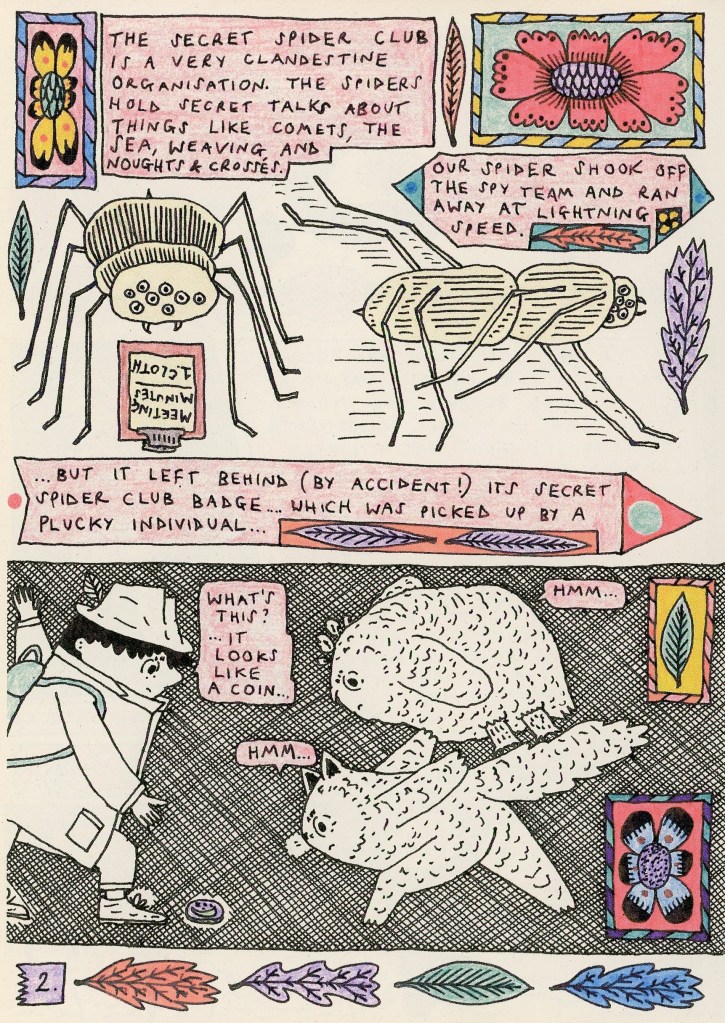 THE SECRET SPIDER CLUB
IS A VERY CLANDESTINE
ORGANISATION. THE SPIDERS
HOLD SECRET TALKS ABOUT
THINGS LIKE COMETS, THE
SEA, WEAVING AND
NOUGHTS & CROSSES.
OUR SPIDER SHOOK OFF
THE SPY TEAM AND RAN
AWAY AT LIGHTNING
SPEED.
MEETING
MINUTES
1. CLOTH
...BUT IT LEFT BEHIND (BY ACCIDENT!) ITS SECRET
SPIDER CLUB BADGE... WHICH WAS PICKED UP BY A
PLUCKY INDIVIDUAL...
WHAT'S
THIS?
...IT
LOOKS
LIKE
A COIN...
HMM...
HMM...
2.